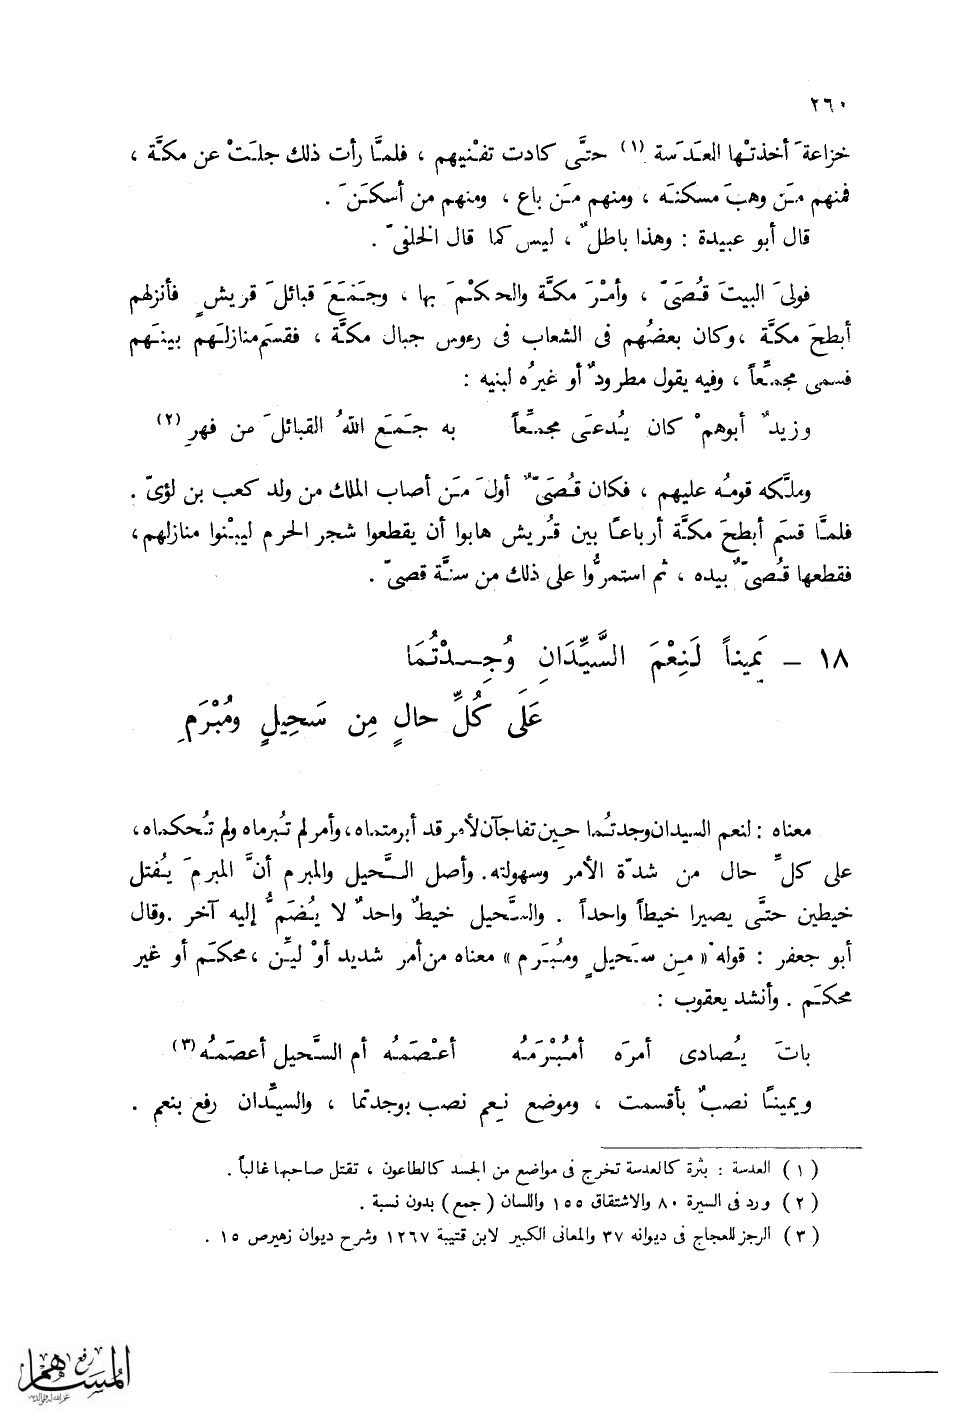 ٢٦٠
خزاعةَ أخذتْها العَدَسة (١) حتَّى كادت تفنْيهم ، فلمَّا رأت ذلك جلَتْ عن مكَّة ،
فمنهم مَن وهبَ مسكنَه ، ومنهم مَن باع ، ومنهم من أسكَنَ .
قال أبو عبيدة : وهذا باطلٌ ، ليس كما قال الخلفىّ .
فولىَ البيتَ قُصَىّ ، وأمْرَ مكَّة والحكْمَ بها ، وجَمَعَ قبائلَ قريشٍ فأنزلهم
أبطحَ مكَّة ، وكان بعضُهم فى الشعاب فى رءوس جبال مكَّة ، فقسَم منازلَهم بينَهم
فسمى مجمِّعاً ، وفيه يقول مطرودٌ أو غيرُه لبنيه :
وزيدٌ أبوهمْ كان يُدعَى مجمِّعاً به جَمَعَ اللهُ القبائلَ من فهرِ (٢)
وملَّكه قومُه عليهم ، فكان قُصَىٌّ أولَ مَن أصاب الملك من ولد كعب بن لؤىّ .
فلمَّا قسَم أبطحَ مكَّة أرباعًا بين قُريش هابوا أن يقطعوا شجر الحرم ليبْنوا منازلهم ،
فقطعها قُصىٌّ بيده ، ثم استمرُّوا على ذلك من سنَّة قصىّ .
١٨ – يَمِيناً لَنِعْمَ السَّيِّدَانِ وُجِدْتُمَا
عَلَى كُلِّ حالٍ مِن سَحِيلٍ ومُبْرَمِ
معناه : لنعم السيدان وجدتُما حين تفاجآن لأمر قد أبرمتماه ، وأمر لم تُبرماه ولم تُحكماه ،
على كلِّ حال من شدّة الأمر وسهولته . وأصل السَّحيل والمبرم أنَّ المبرمَ يُفتل
خيطين حتَّى يصيرا خيطاً واحداً . والسَّحيل خيطٌ واحدٌ لا يُضَمُّ إليه آخر . وقال
أبو جعفر : قوله « مِن سَحيلٍ ومُبَرم » معناه من أمر شديد أوْ ليِّن ، محكَم أو غير
محكَم . وأنشد يعقوب :
باتَ يُصادى أمرَه أمُبْرَمُه أعْصَمُه أم السَّحيل أعصَمُه (٣)
ويمينًا نصبٌ بأقسمت ، وموضع نِعم نصب بوجدتما ، والسيِّدان رفع بنعم .
(١) العدسة : بثرة كالعدسة تخرج فى مواضع من الجسد كالطاعون ، تقتل صاحبها غالباً .
(٢) ورد فى السيرة ٨٠ والاشتقاق ١٥٥ واللسان (جمع) بدون نسبة .
(٣) الرجز للعجاج فى ديوانه ٣٧ والمعانى الكبير لابن قتيبة ١٢٦٧ وشرح ديوان زهير ص ١٥ .